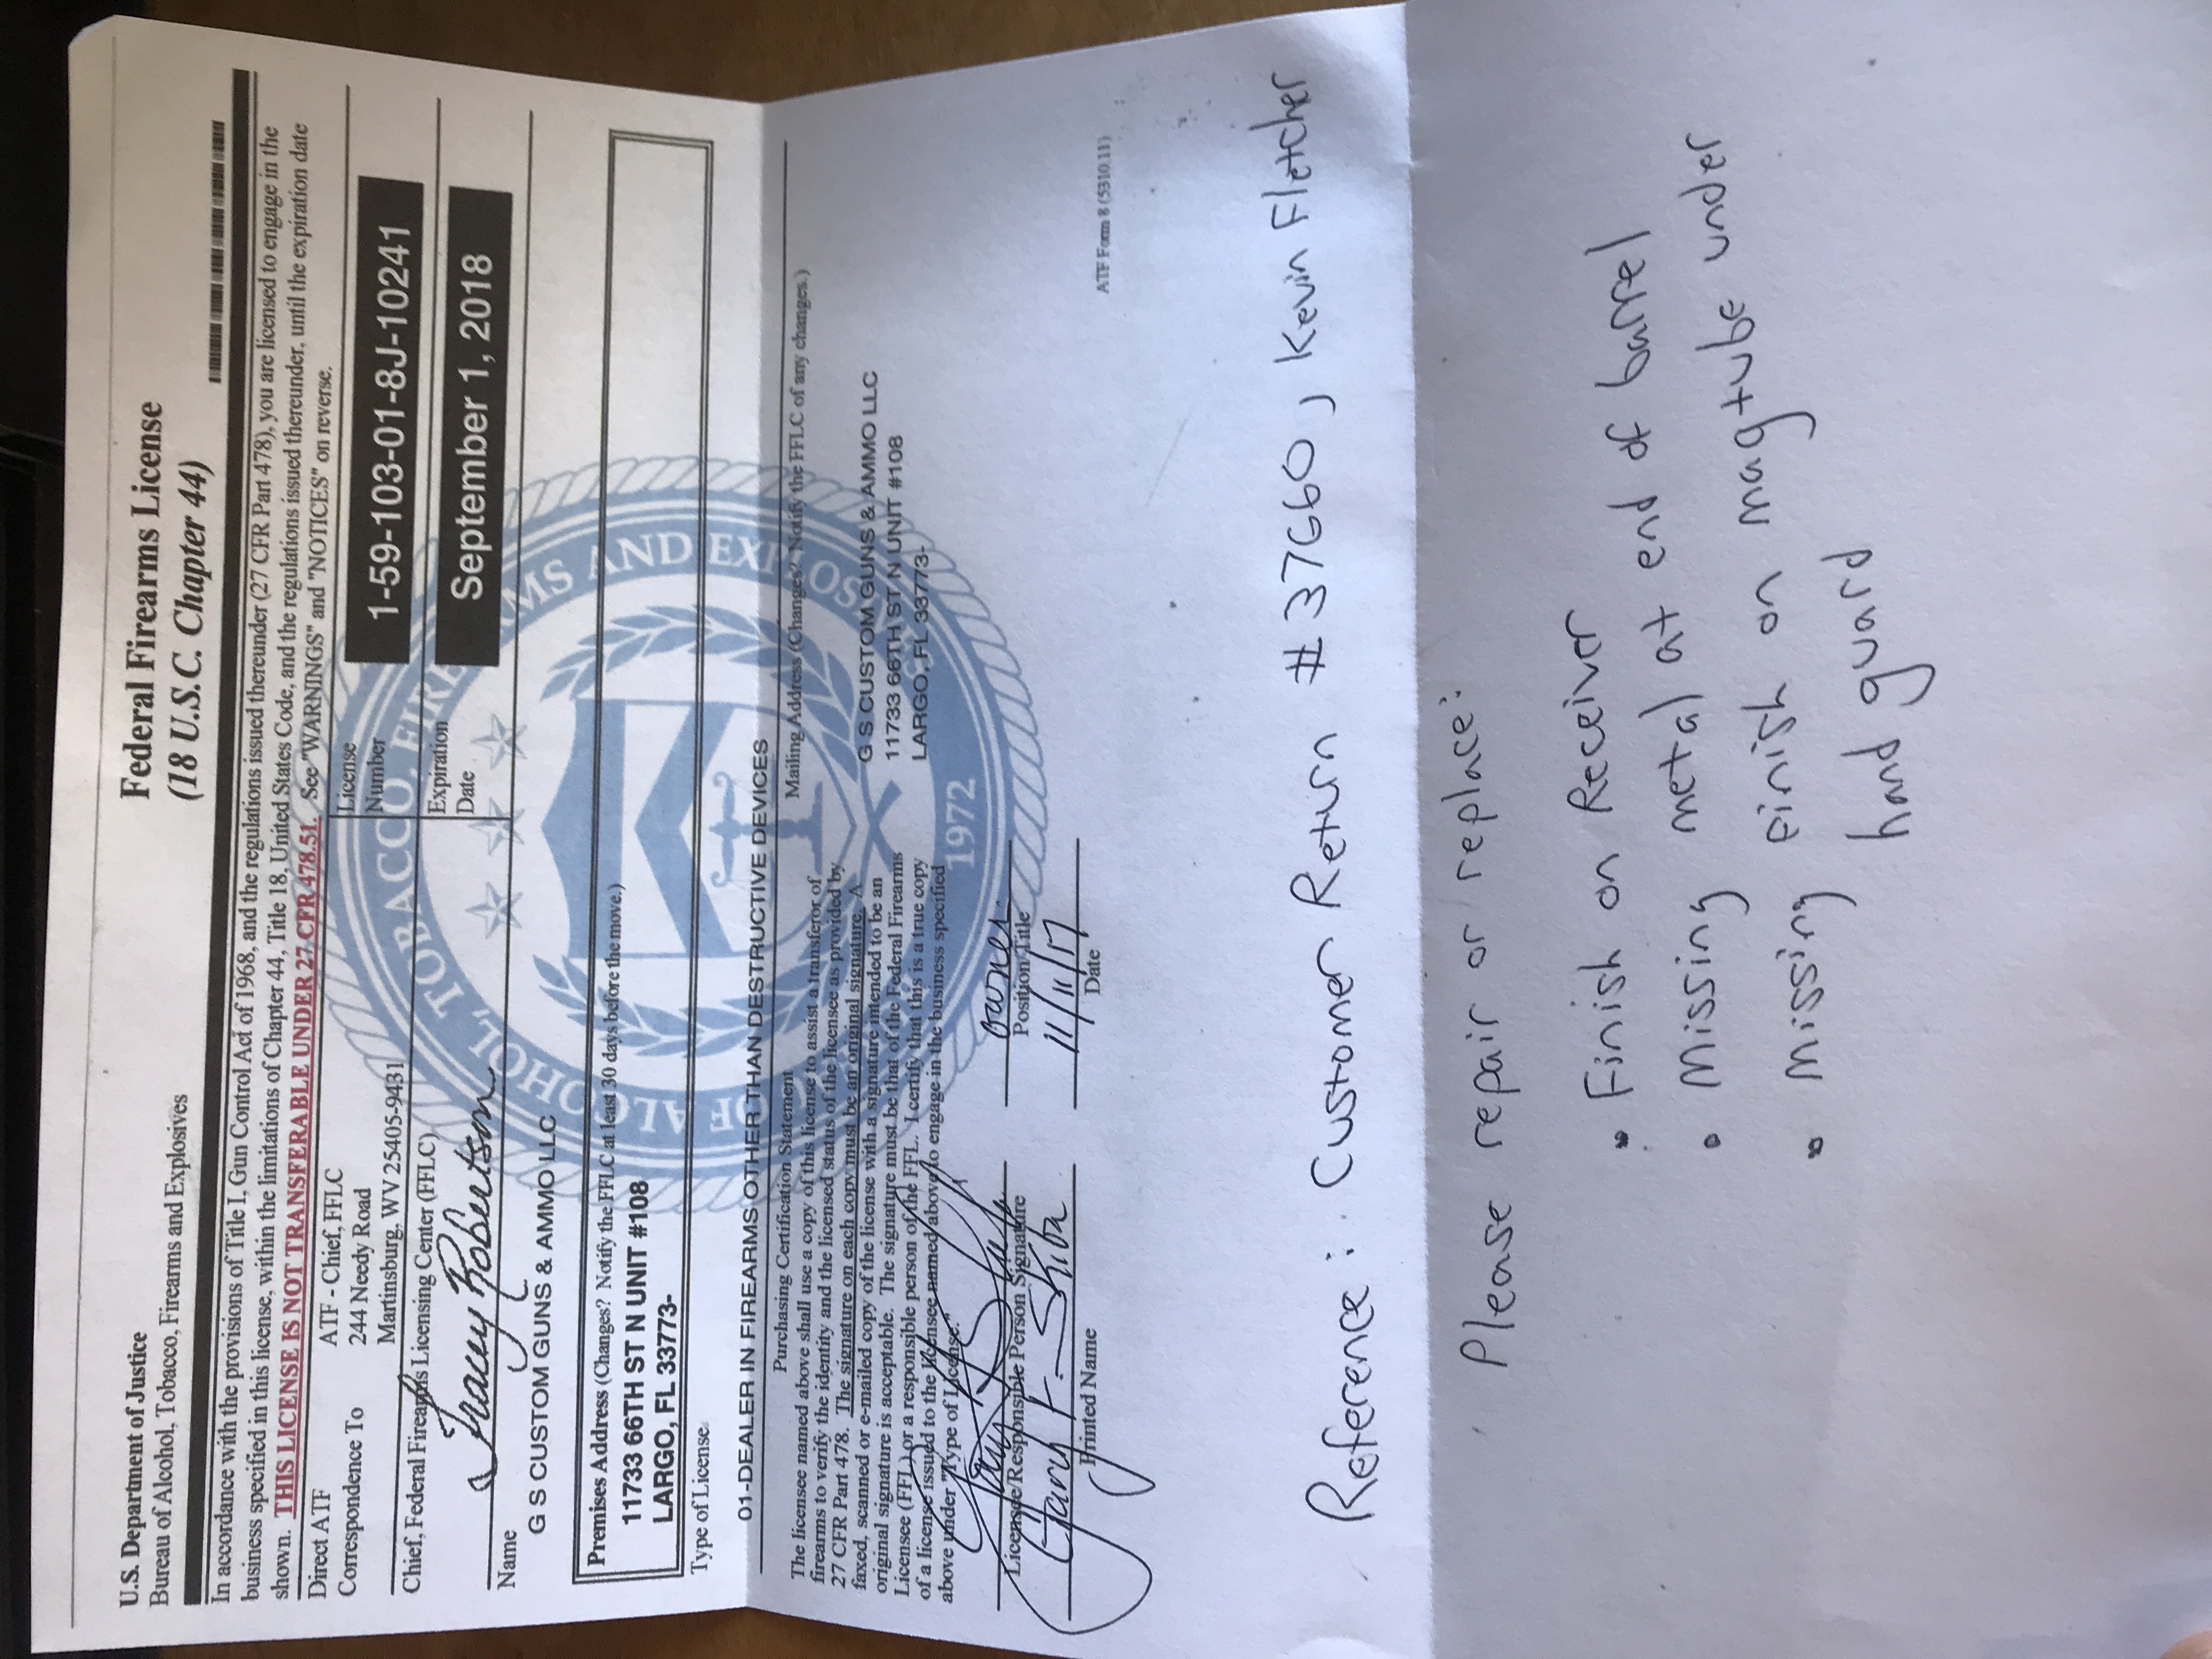 U.S. Department of Justice
Bureau of Alcohol, Tobacco, Firearms and Explosives
Federal Firearms License
(18 U.S.C. Chapter 44)
In accordance with the provisions of Title I, Gun Control Act of 1968, and the regulations issued thereunder (27 CFR Part 478), you are licensed to engage in the
business specified in this license, within the limitations of Chapter 44, Title 18, United States Code, and the regulations issued thereunder, until the expiration date
shown. THIS LICENSE IS NOT TRANSFERABLE UNDER 27 CFR 478.51. See "WARNINGS" and "NOTICES" on reverse.
Direct ATF
Correspondence To
ATF - Chief, FFLC
244 Needy Road
Martinsburg, WV 25405-9431
License
Number
1-59-103-01-8J-10241
Chief, Federal Firearms Licensing Center (FFLC)
Tracey Robertson
Expiration
Date
September 1, 2018
Name
G S CUSTOM GUNS & AMMO LLC
Premises Address (Changes? Notify the FFLC at least 30 days before the move.)
11733 66TH ST N UNIT #108
LARGO, FL 33773-
Type of License
01-DEALER IN FIREARMS OTHER THAN DESTRUCTIVE DEVICES
Purchasing Certification Statement
The licensee named above shall use a copy of this license to assist a transferor of
firearms to verify the identity and the licensed status of the licensee as provided by
27 CFR Part 478. The signature on each copy must be an original signature. A
faxed, scanned or e-mailed copy of the license with a signature intended to be an
original signature is acceptable. The signature must be that of the Federal Firearms
Licensee (FFL) or a responsible person of the FFL. I certify that this is a true copy
of a license issued to the licensee named above to engage in the business specified
above under "Type of License."
Mailing Address (Changes? Notify the FFLC of any changes.)
G S CUSTOM GUNS & AMMO LLC
11733 66TH ST N UNIT #108
LARGO, FL 33773-
OF ALCOHOL, TOBACCO, FIREARMS AND EXPLOSIVES
1972
owner
Licensee/Responsible Person Signature
Position/Title
Gary F. Skiba
11/11/17
Printed Name
Date
ATF Form 8 (5310.11)
Reference: Customer Return #37660, Kevin Fletcher
Please repair or replace:
• Finish on Receiver
• Missing metal at end of barrel
• Missing finish on magtube under
hand guard